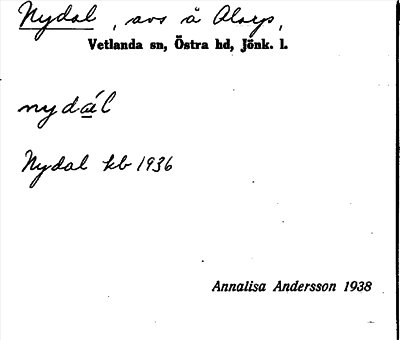 Nydal, avs å Alarp,
Vetlanda sn, Östra hd, Jönk. l.
nydál
Nydal kb 1936
Annalisa Andersson 1938